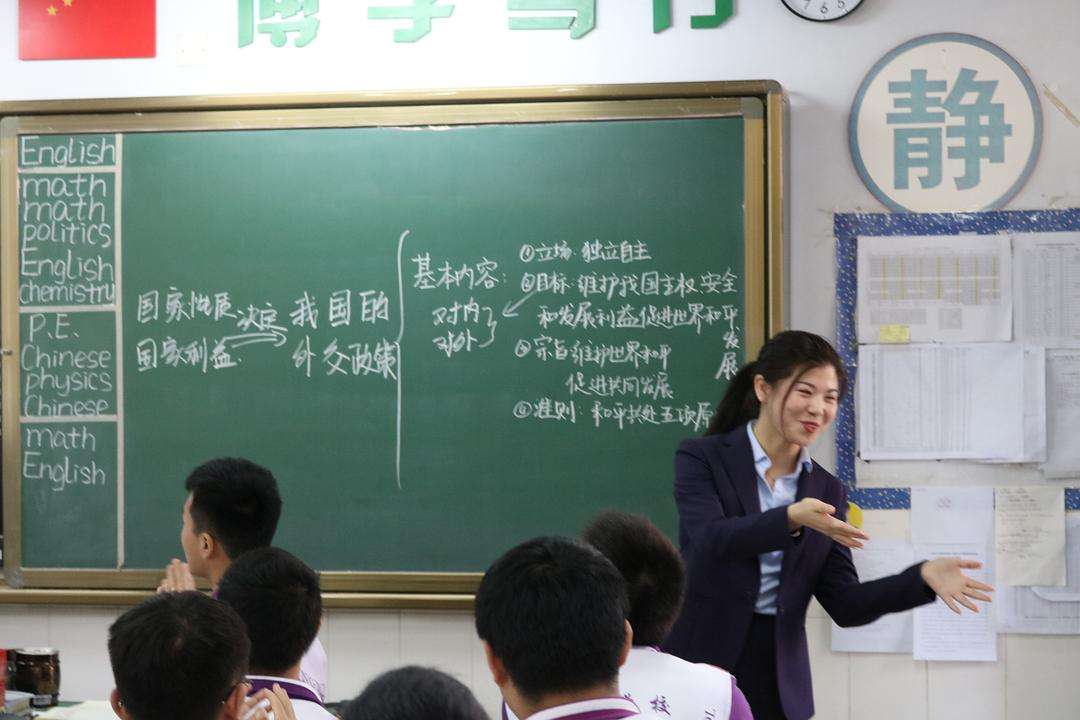 博学笃行
7 6 5
静
English
math
math
politics
English
chemistry
P.E.
Chinese
physics
Chinese
math
English
国家性质
国家利益
决定
我国的
外交政策
基本内容:
对内
对外
①立场:独立自主
②目标:维护我国主权、安全
和发展利益,促进世界和平
发展
③宗旨:维护世界和平
促进共同发展
④准则:和平共处五项原
校